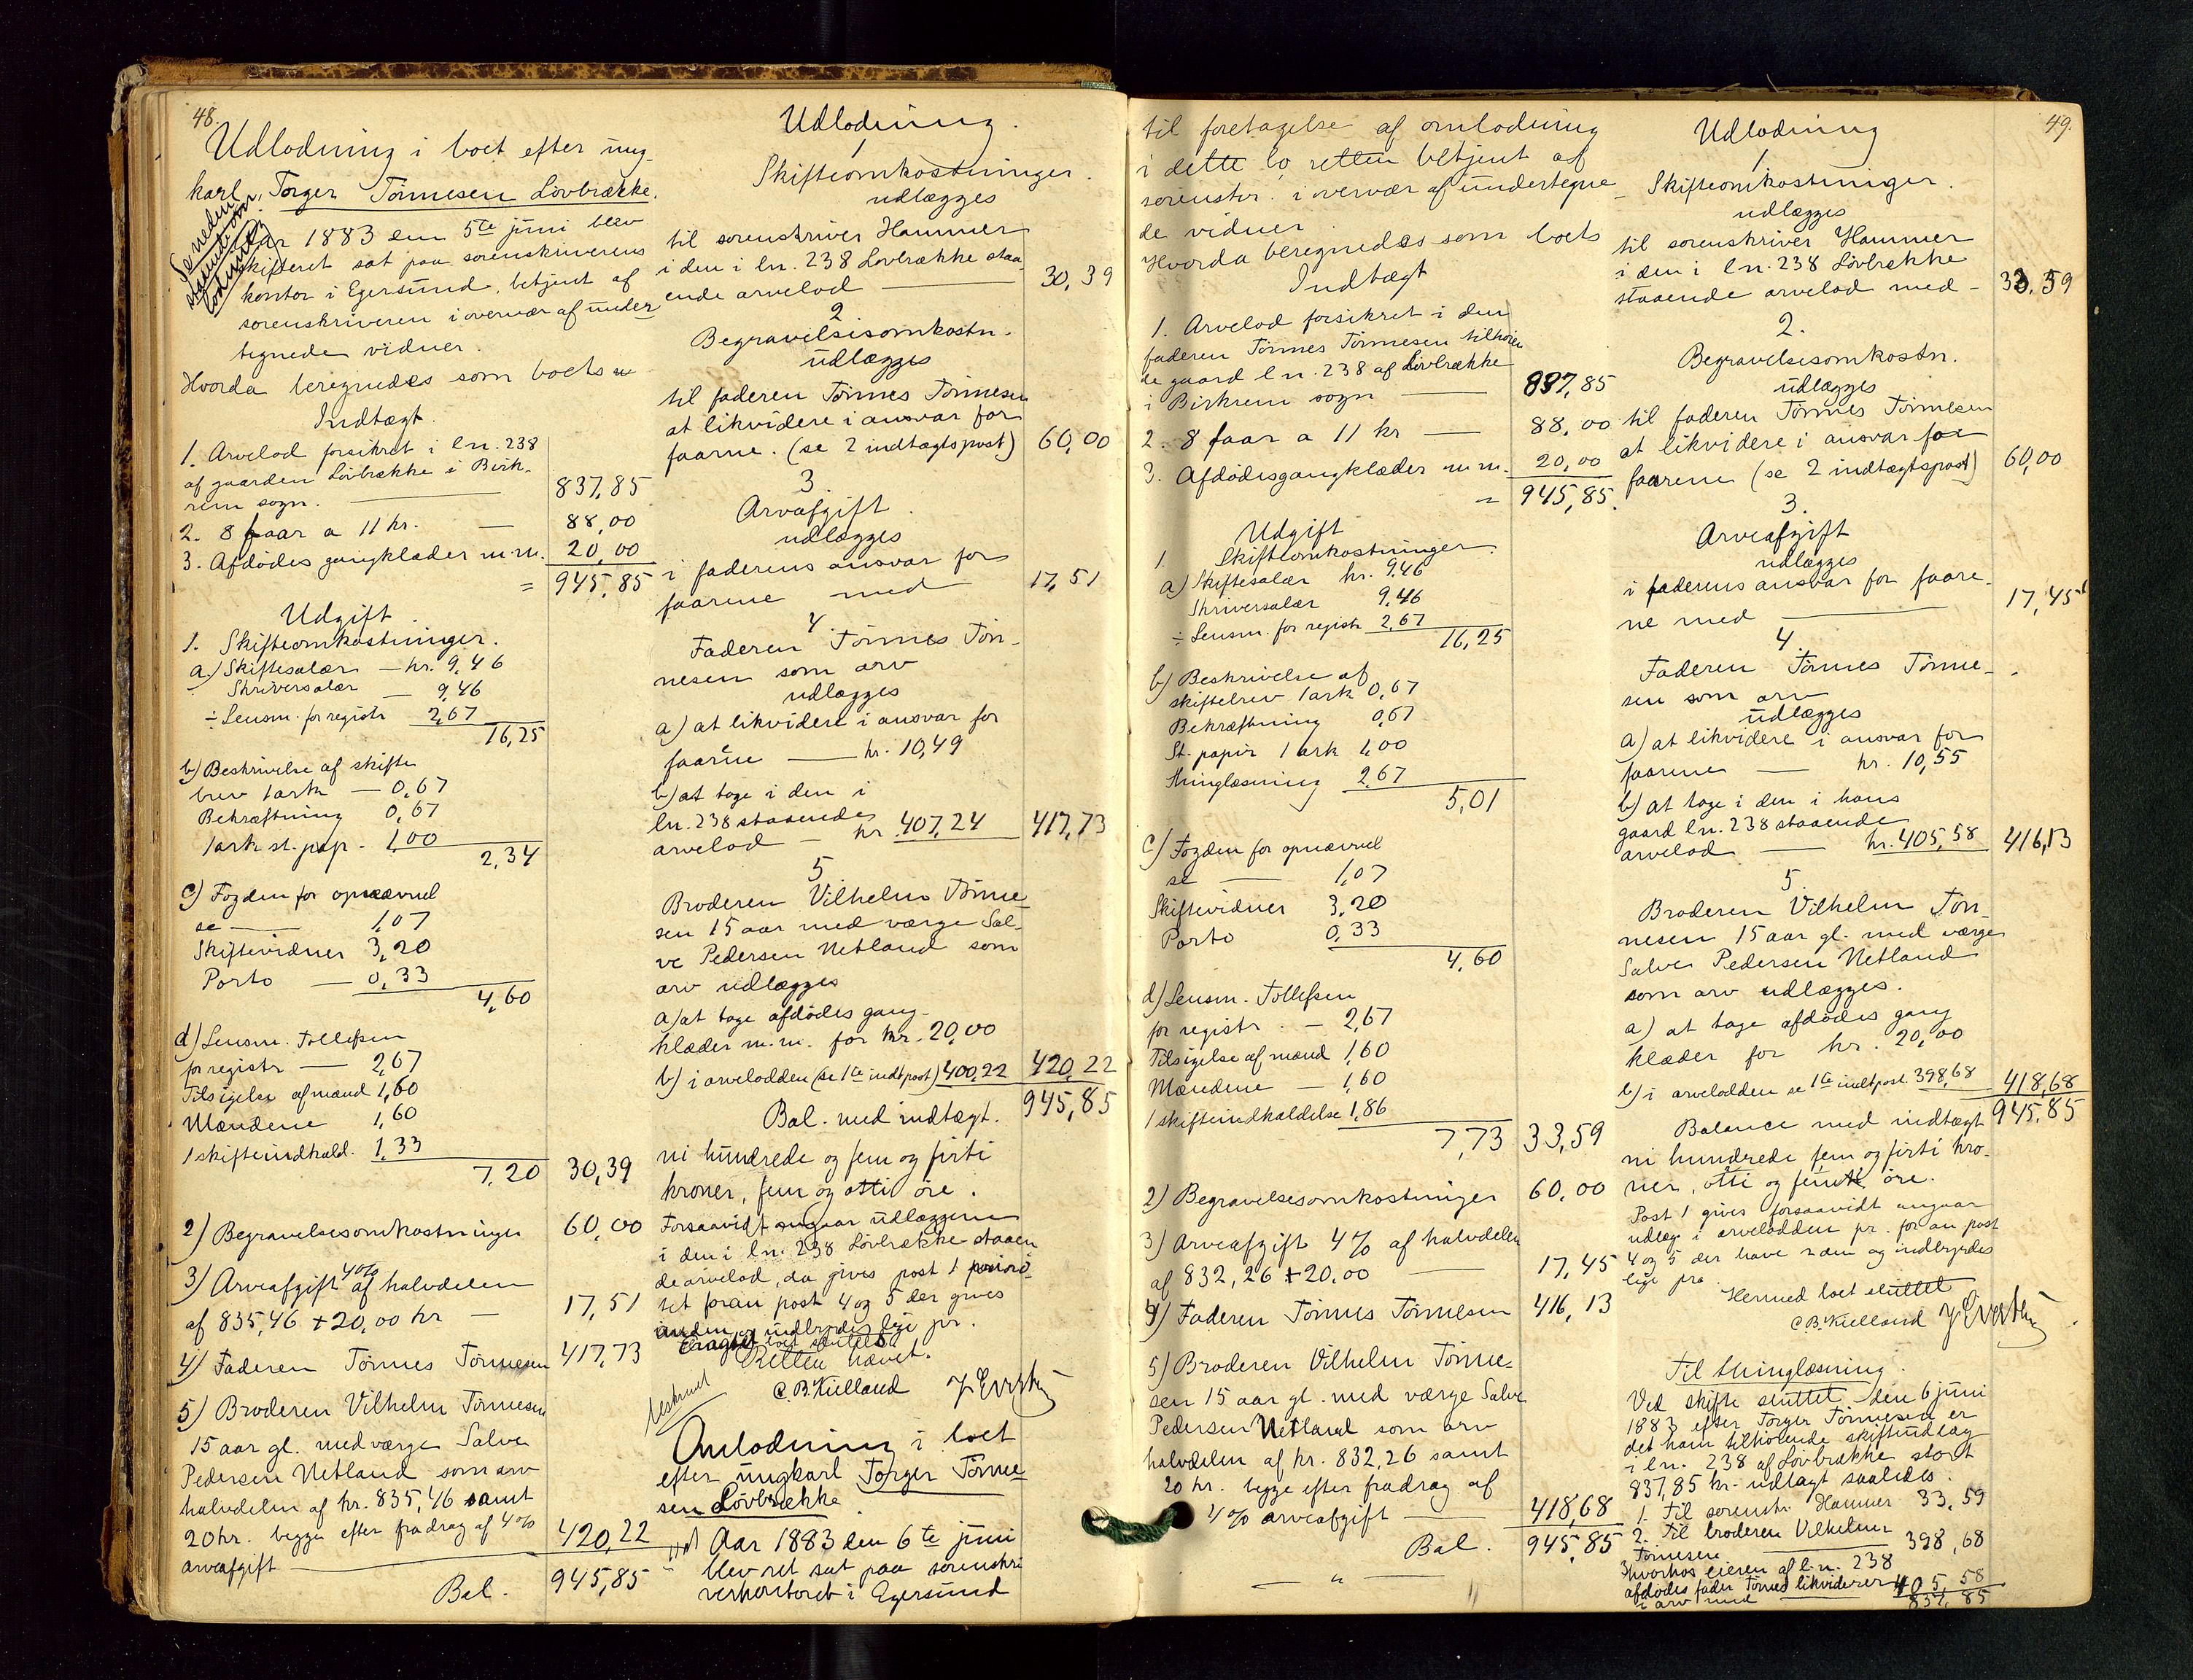 48.
Udlodning i boet efter ung-
karl, Torger Tönnesen Lövbrække.
Se neden
staaende om
lodning
Aar 1883 den 5te juni blev
skifteret sat paa sorenskriverens
kontor i Egersund, betjent af
sorenskriveren i overvær af under
tegnede vidner.
Hvorda beregnedes som boets
Indtægt.
1. Arvelod forsikret i ln. 238
af gaarden Lövbrække i Birk-
rem sogn. 837,85
2. 8 faar a 11 kr. — 88,00
3. Afdödes gangklæder m.m. 20,00
= 945,85
Udgift.
1. Skifteomkostninger.
a) Skiftesalær — kr. 9,46
Skriversalær — 9,46
÷ Lensm. for registr 2,67
16,25
b) Beskrivelse af skifte
brev 1 ark — 0,67
Bekræftning 0,67
1 ark st. pap. - 1,00
2,34
c) Fogden for opnævnel
se — 1,07
Skiftevidner 3,20
Porto — 0,33
4,60
d) Lensm. Tollefsen
for registr — 2,67
Tilsigelse af mænd 1,60
Mændene 1,60
1 skifteindkald. 1,33
7,20 30,39
2) Begravelsesomkostninger 60,00
3) Arveafgift 4% af halvdelen
af 835,46 + 20,00 kr — 17,51
4) Faderen Tönnes Tönnesen 417,73
5) Broderen Vilhelm Tönnesen
15 aar gl. med værge Salve
Pedersen Netland som arv
halvdelen af kr. 835,46 samt
20 kr. begge efter fradrag af 4%
arveafgift — 420,22
Bal. 945,85
Udlodning.
1
Skifteomkostninger.
udlægges
til sorenskriver Hammer
i den i ln. 238 Lövbrække staa
ende arvelod — 30,39
2
Begravelsisomkostn.
udlægges
til faderen Tönnes Tönnesen
at likvidere i ansvar for
faarne. (se 2 indtægtspost) 60,00
3
Arvafgift.
udlægges
i faderens ansvar for
faarene med 17,51
4.
Faderen Tönnes Tön-
nesen som arv
udlægges
a) at likvidere i ansvar for
faarne — kr. 10,49
b) at tage i den i
ln. 238 staaende
arvelod — kr. 407,24 417,73
5
Broderen Vilhelm Tönne
sen 15 aar med værge Sal-
ve Pedersen Netland som
arv udlægges
a) at tage afdödes gang-
klæder m.m. for kr. 20,00
b) i arvelodden (se 1te indt post) 400,22 420,22
Bal. med indtægt. 945,85
ni hundrede og fem og firti
kroner, fem og otti öre.
Forsaavidt angaar udlæggene
i den i ln. 238 Lövbrække staaen
de arvelod, da gives post 1 priori-
tet foran post 4 og 5 der gives
anden og indbyrdes lige pr.
Retten hævet.
C. B. Kielland J Evertsen
beskrevet
Omlodning i boet
efter ungkarl Torger Tönne
sen Lövbrække
Aar 1883 den 6te juni
blev ret sat paa sorenskri
verkontoret i Egersund
49.
til foretagelse af omlodning
i dette bo, retten betjent af
sorenskr. i overvær af undertegne
de vidner.
Hvorda beregnedes som boets
Indtægt
1. Arvelod forsikret i den
faderen Tönnes Tönnesen tilhören
de gaard ln. 238 af Lövbrække
i Birkrem sogn — 837,85
2. 8 faar a 11 kr — 88,00
3. Afdödes gangklæder m.m. 20,00
= 945,85.
Udgift
1. Skifteomkostninger.
a) Skiftesalær kr. 9,46
Skriversalær 9,46
÷ Lensm. for registr 2,67
16,25
b) Beskrivelse af
skiftebrev 1 ark 0,67
Bekræftning 0,67
St. papir 1 ark 1,00
Thinglæsning 2,67
5,01
c) Fogden for opnævnel
se — 1,07
Skiftevidner 3,20
Porto 0,33
4,60
d) Lensm. Tollefsen
for registr. — 2,67
Tilsigelse af mænd 1,60
Mændene — 1,60
1 skifteindkaldelse 1,86
7,73 33,59
2) Begravelsesomkostninger 60,00
3) Arveafgift 4% af halvdelen
af 832,26 + 20,00 — 17,45
4) Faderen Tönnes Tönnesen 416,13
5) Broderen Vilhelm Tönne-
sen 15 aar gl. med værge Salve
Pedersen Netland som arv
halvdelen af kr. 832,26 samt
20 kr. begge efter fradrag af
4% arveafgift — 418,68
Bal. 945,85
— " —
Udlodning
1
Skifteomkostninger.
udlægges
til sorenskriver Hammer
i den i ln. 238 Lövbrække
staaende arvelod med — 33,59
2.
Begravelsisomkostn.
udlægges
til faderen Tönnes Tönnesen
at likvidere i ansvar for
faarene (se 2 indtægtspost) 60,00
3.
Arveafgift
udlægges
i faderens ansvar for faare-
ne med — 17,45
4.
Faderen Tönnes Tönne-
sen som arv
udlægges
a) at likvidere i ansvar for
faarene — kr. 10,55
b) at tage i den i hans
gaard ln. 238 staaende
arvelod — kr. 405,58 416,13
5.
Broderen Vilhelm Tön-
nesen 15 aar gl. med værge
Salve Pedersen Netland
som arv udlægges.
a) at tage afdödes gang
klæder for kr. 20,00
b) i arvelodden se 1te indtpost. 398,68 418,68
Balance med indtægt 945,85
ni hundrede fem og firti kro-
ner, otti og femti öre.
Post 1 gives forsaavidt angaar
udlæg i arvelodden pr. foran post
4 og 5 der have anden og indbyrdes
lige pro.
Hermed boet sluttet
C. B. Kielland J Evertsen
Til thinglæsning.
Ved skifte sluttet den 6 juni
1883 efter Torger Tönnesen er
det ham tilhörende skifteudlæg
i ln. 238 af Lövbrække stort
837,85 kr. udlagt saaledes.
1. Til sorenskr. Hammer 33,59
2. Til broderen Vilhelm
Tönnesen — 398,68
3 hvorhos eieren af l.n. 238
afdödes fader Tönnes likviderer 405,58
i arv med 837,85